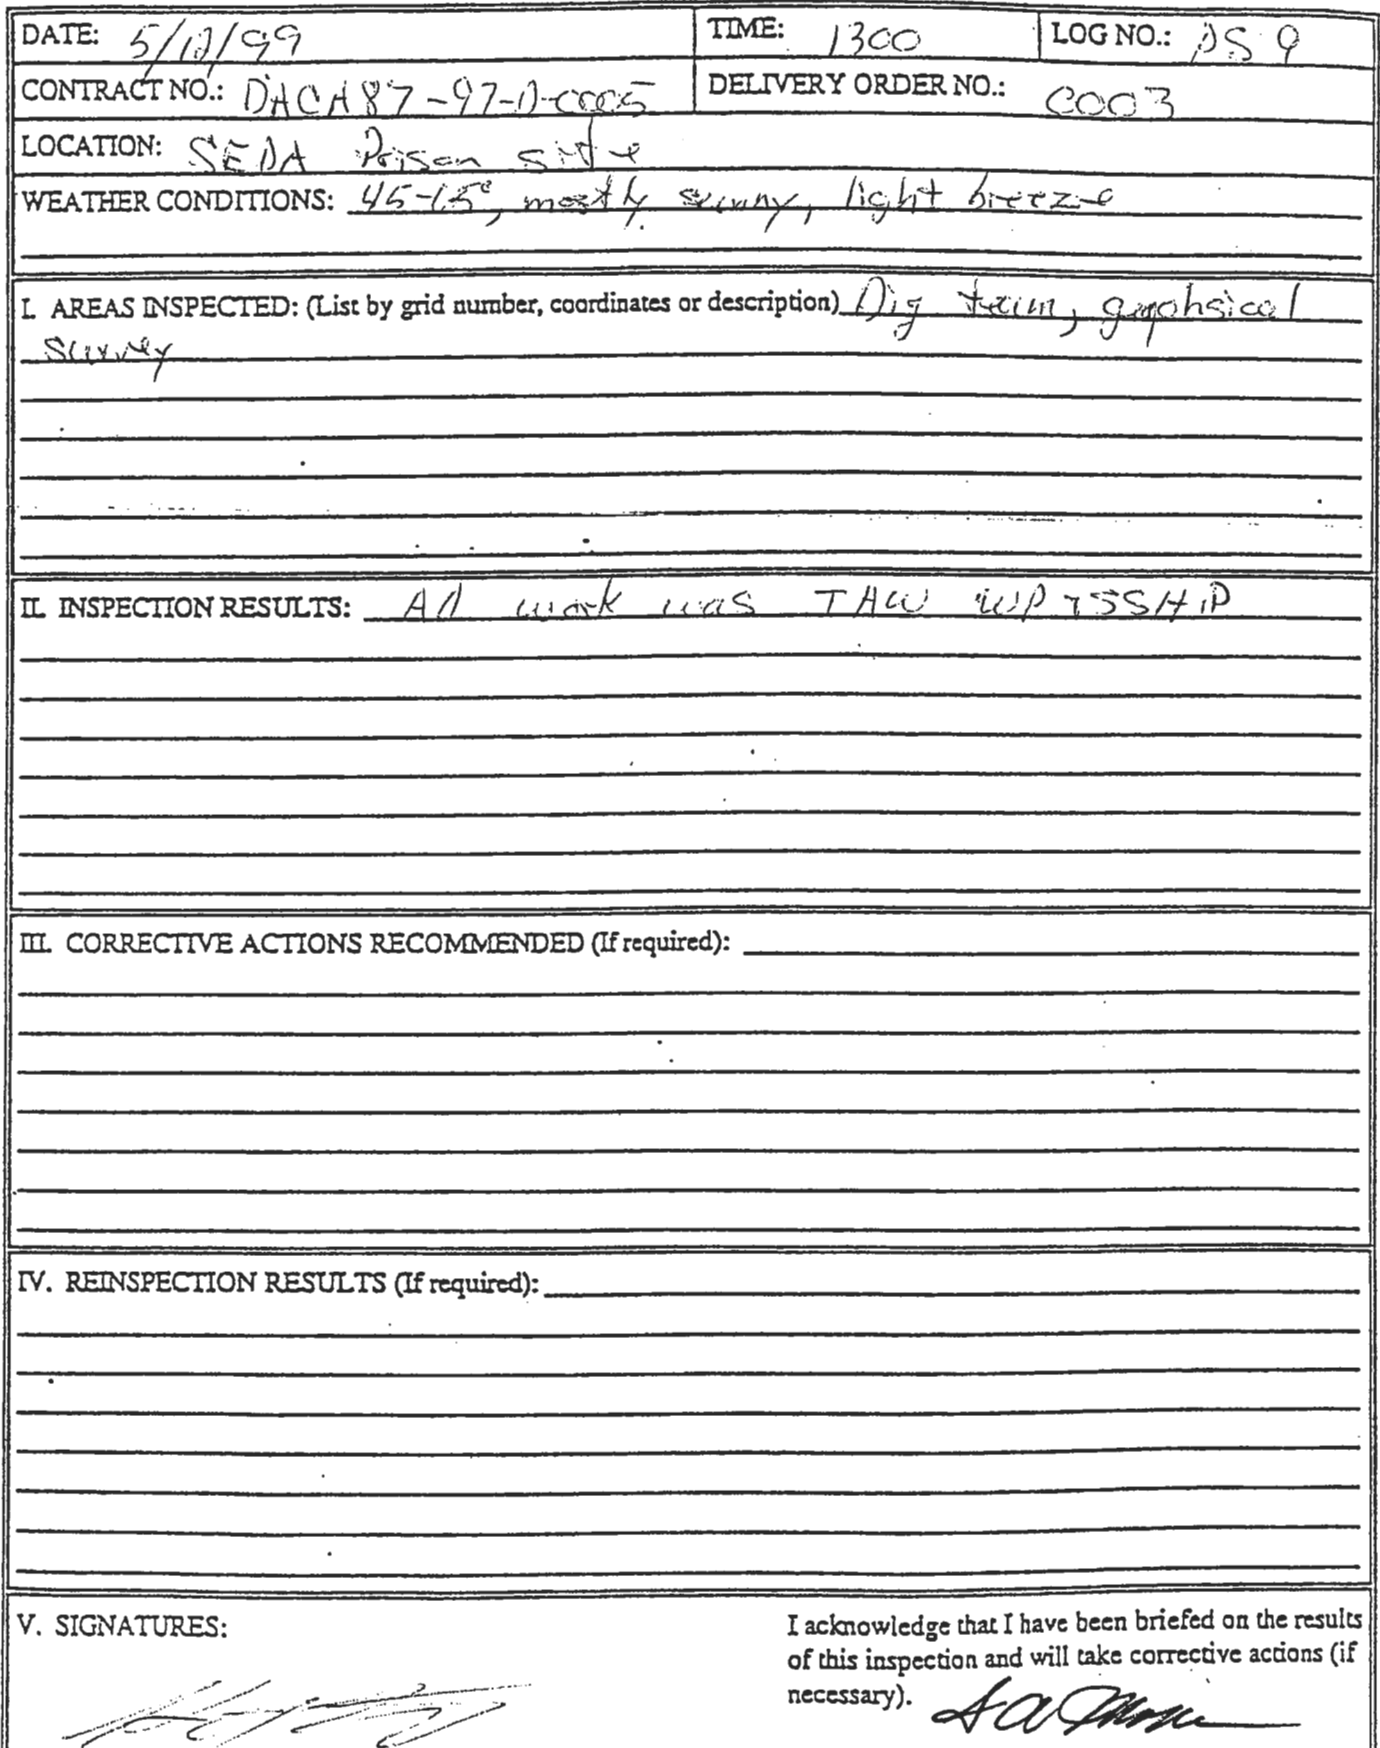 DATE: 5/12/99 TIME: 1300 LOG NO.: DS 9
CONTRACT NO.: DACA87-97-D-0005 DELIVERY ORDER NO.: 0003
LOCATION: SEDA Prison site
WEATHER CONDITIONS: 45-65°, mostly sunny, light breeze
I. AREAS INSPECTED: (List by grid number, coordinates or description) Dig team, geophsical
survey
II. INSPECTION RESULTS: All work was IAW WP & SSHP
III. CORRECTIVE ACTIONS RECOMMENDED (If required):
IV. REINSPECTION RESULTS (If required):
V. SIGNATURES:
I acknowledge that I have been briefed on the results
of this inspection and will take corrective actions (if
necessary).